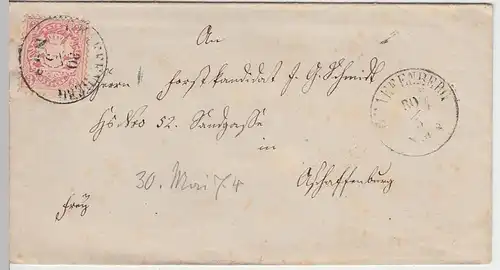 An
Herrn Forstkandidat J. G. Schmidt
Hs Nro 52. Sandgasse
in
Aschaffenburg
30. Mai 74
frei
30
5